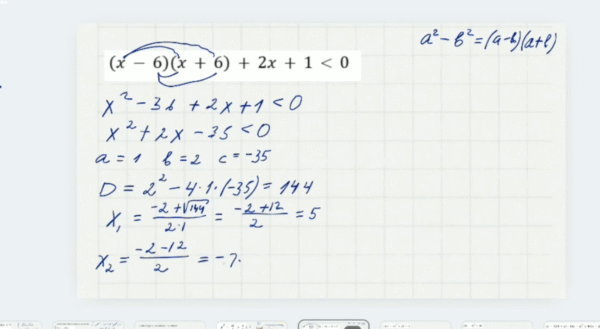 a² - b² = (a-b)(a+b)
(x − 6)(x + 6) + 2x + 1 < 0
x² - 36 + 2x + 1 < 0
x² + 2x - 35 < 0
a = 1 b = 2 c = -35
D = 2² - 4·1·(-35) = 144
x₁ = (-2 + √144)/(2·1) = (-2 + 12)/2 = 5
x₂ = (-2 - 12)/2 = -7.